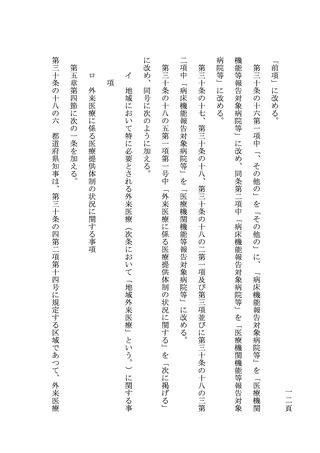 一二頁
「前項」に改める。
第三十条の十六第一項中「、その他の」を「その他の」に、「病床機能報告対象病院等」を「医療機関
機能等報告対象病院等」に改め、同条第二項中「病床機能報告対象病院等」を「医療機関機能等報告対象
病院等」に改める。
第三十条の十七、第三十条の十八、第三十条の十八の二第一項及び第三項並びに第三十条の十八の三第
二項中「病床機能報告対象病院等」を「医療機関機能等報告対象病院等」に改める。
第三十条の十八の五第一項第一号中「外来医療に係る医療提供体制の状況に関する」を「次に掲げる」
に改め、同号に次のように加える。
イ 地域において特に必要とされる外来医療(次条において「地域外来医療」という。)に関する事
項
ロ 外来医療に係る医療提供体制の状況に関する事項
第五章第四節に次の一条を加える。
第三十条の十八の六 都道府県知事は、第三十条の四第二項第十四号に規定する区域であつて、外来医療